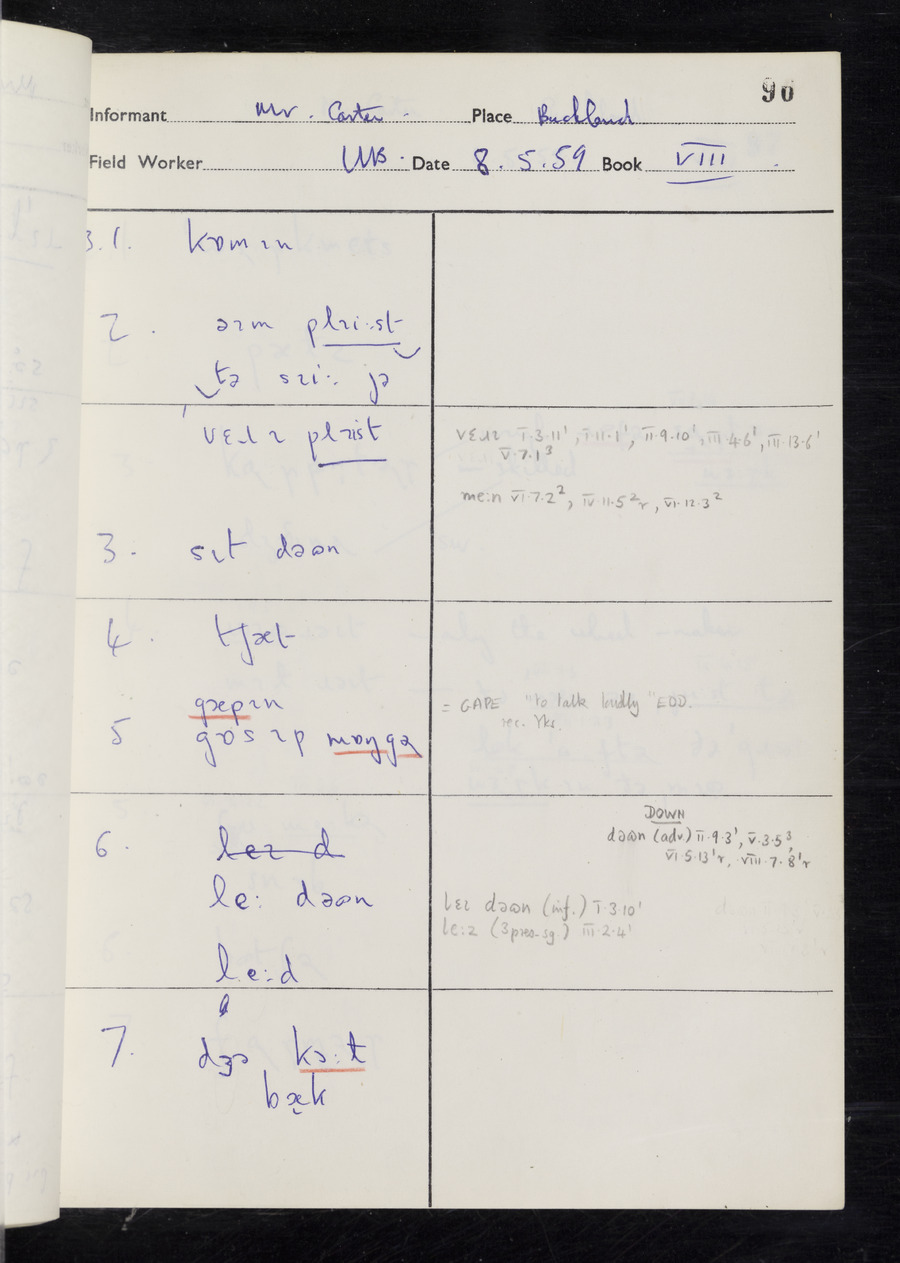 96
Informant Mr. Carter. Place Buckland
Field Worker WB. Date 8.5.59 Book VIII
3.1. kɒmɪn
2. əɪm plɪi·st
tə sɪi: jə
vɛɹɪ plɪist
vɛɹɪ I·3·11¹, II·11·1¹, II·9·10¹, III·4·6¹, III·13·6¹
V·7·1³
me:n VI·7·2², IV·11·5²r, VI·12·3²
3. sɪt dəʊn
4. tʃæt
gæpɪn
= GAPE "to talk loudly" EDD.
rec. Yks.
5 gɒsɪp
DOWN
dəʊn (adv) II·9·3¹, V·3·5³,
VI·5·13¹r, VIII·7·8¹r
6. leɪ d
le: dəʊn
lɛɪ dəʊn (inf.) I·3·10¹
le:z (3 pres. sg.) III·2·4¹
le:d
7.
bæk